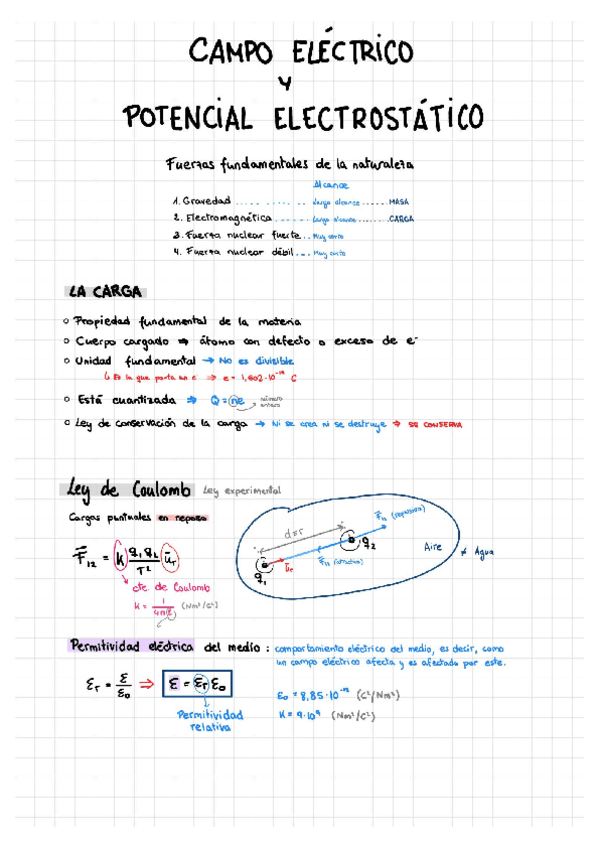 CAMPO ELÉCTRICO
Y
POTENCIAL ELECTROSTÁTICO
Fuerzas fundamentales de la naturaleza
Alcance
1. Gravedad ........... Largo alcance ..... MASA
2. Electromagnética ...... Largo alcance ....... CARGA
3. Fuerza nuclear fuerte .. Muy corto
4. Fuerza nuclear débil ... Muy corto
LA CARGA
○ Propiedad fundamental de la materia
○ Cuerpo cargado ⇒ átomo con defecto o exceso de e⁻
○ Unidad fundamental → No es divisible
↳ Es la que porta un e⁻ ⇒ e = 1,602·10⁻¹⁹ C
○ Está cuantizada ⇒ Q = ne → número entero
○ Ley de conservación de la carga → Ni se crea ni se destruye ⇒ SE CONSERVA
Ley de Coulomb Ley experimental
Cargas puntuales en reposo
F₁₂ (repulsión)
d=r
q₂
Aire ≠ Agua
F̄₁₂ = k q₁q₂/r² ūr
ūr
F₁₂ (atractiva)
q₁
cte. de Coulomb
K = 1/4πε (Nm²/C²)
Permitividad eléctrica del medio: comportamiento eléctrico del medio, es decir, como
un campo eléctrico afecta y es afectado por este.
εr = ε/ε₀ ⇒ ε = εr ε₀
ε₀ = 8,85·10⁻¹² (C²/Nm²)
Permitividad
relativa
K = 9·10⁹ (Nm²/C²)